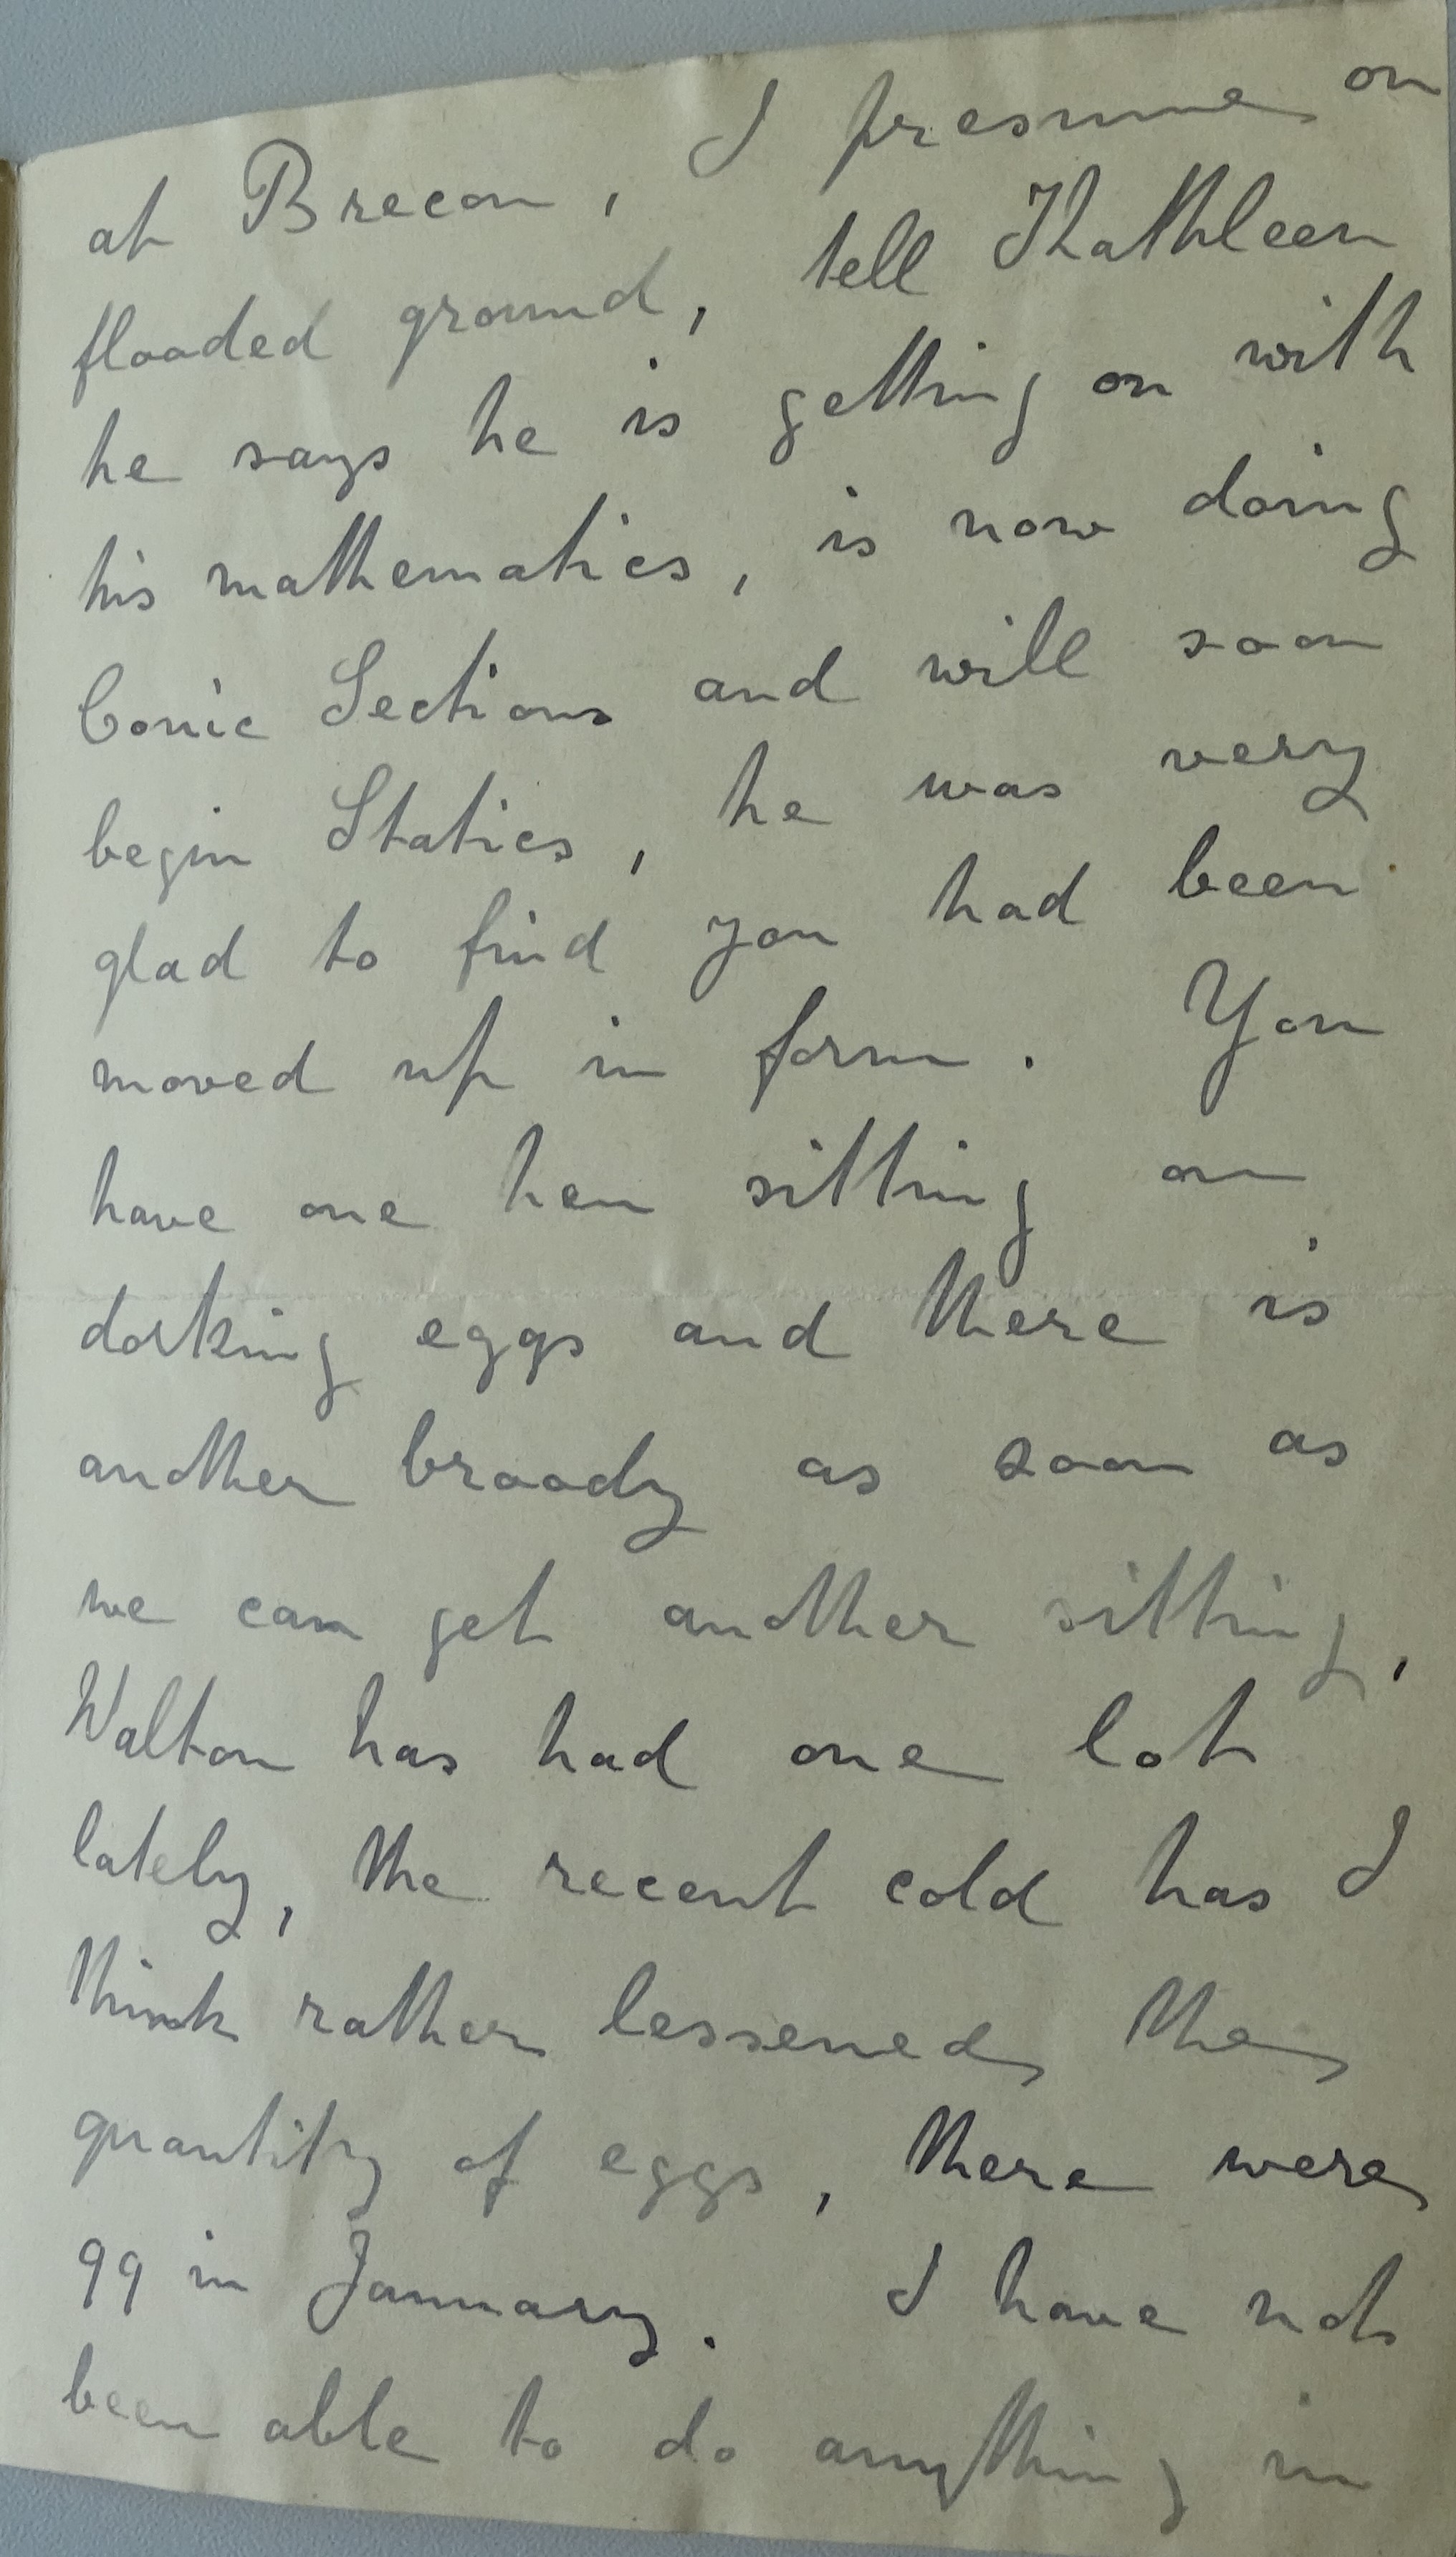 at Brecon, I presume on
flooded ground, tell Kathleen
he says he is getting on with
his mathematics, is now doing
Conic Sections and will soon
begin Statics, he was very
glad to find you had been
moved up in form. You
have one hen sitting on
dorking eggs and there is
another broody as soon as
we can get another sitting,
Walton has had one lot
lately, the recent cold has I
think rather lessened the
quantity of eggs, there were
99 in January. I have not
been able to do anything in